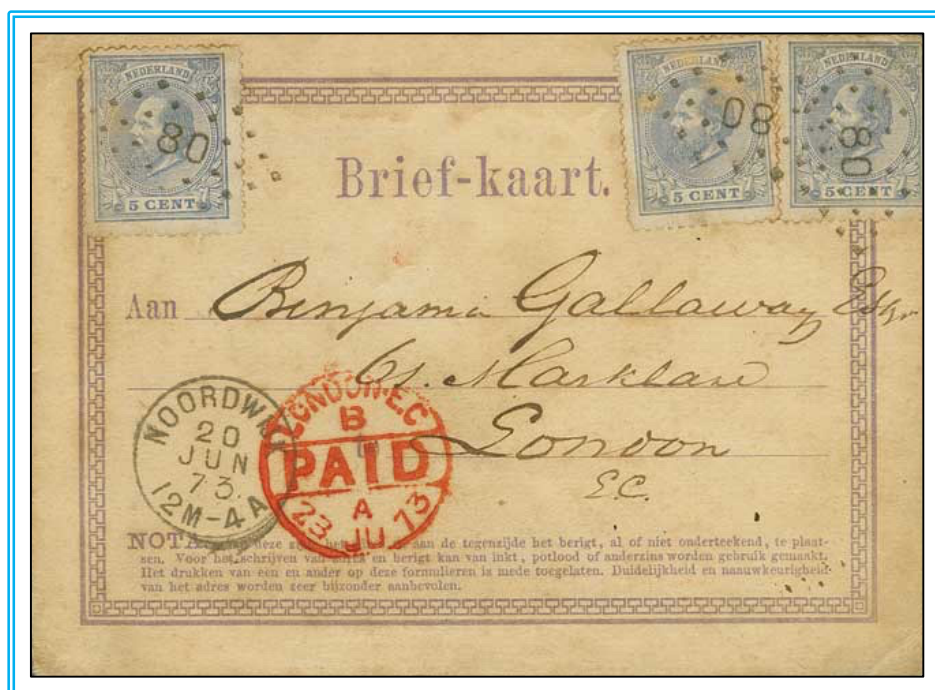 NEDERLAND
80
5 CENT
NEDERLAND
80
5 CENT
NEDERLAND
80
5 CENT
Brief-kaart.
Aan Benjamin Gallaway Esqr
61. Marklane
London
E.C.
NOORDWIJK
20
JUN
73.
12M-4A
LONDON.E.C
B
PAID
A
23 JU 73
NOTA. deze aan de tegenzijde het berigt, al of niet onderteekend, te plaat-
sen. Voor het schrijven van adres en berigt kan van inkt, potlood of anderzins worden gebruik gemaakt.
Het drukken van een en ander op deze formulieren is mede toegelaten. Duidelijkheid en naauwkeurigheid
van het adres worden zeer bijzonder aanbevolen.